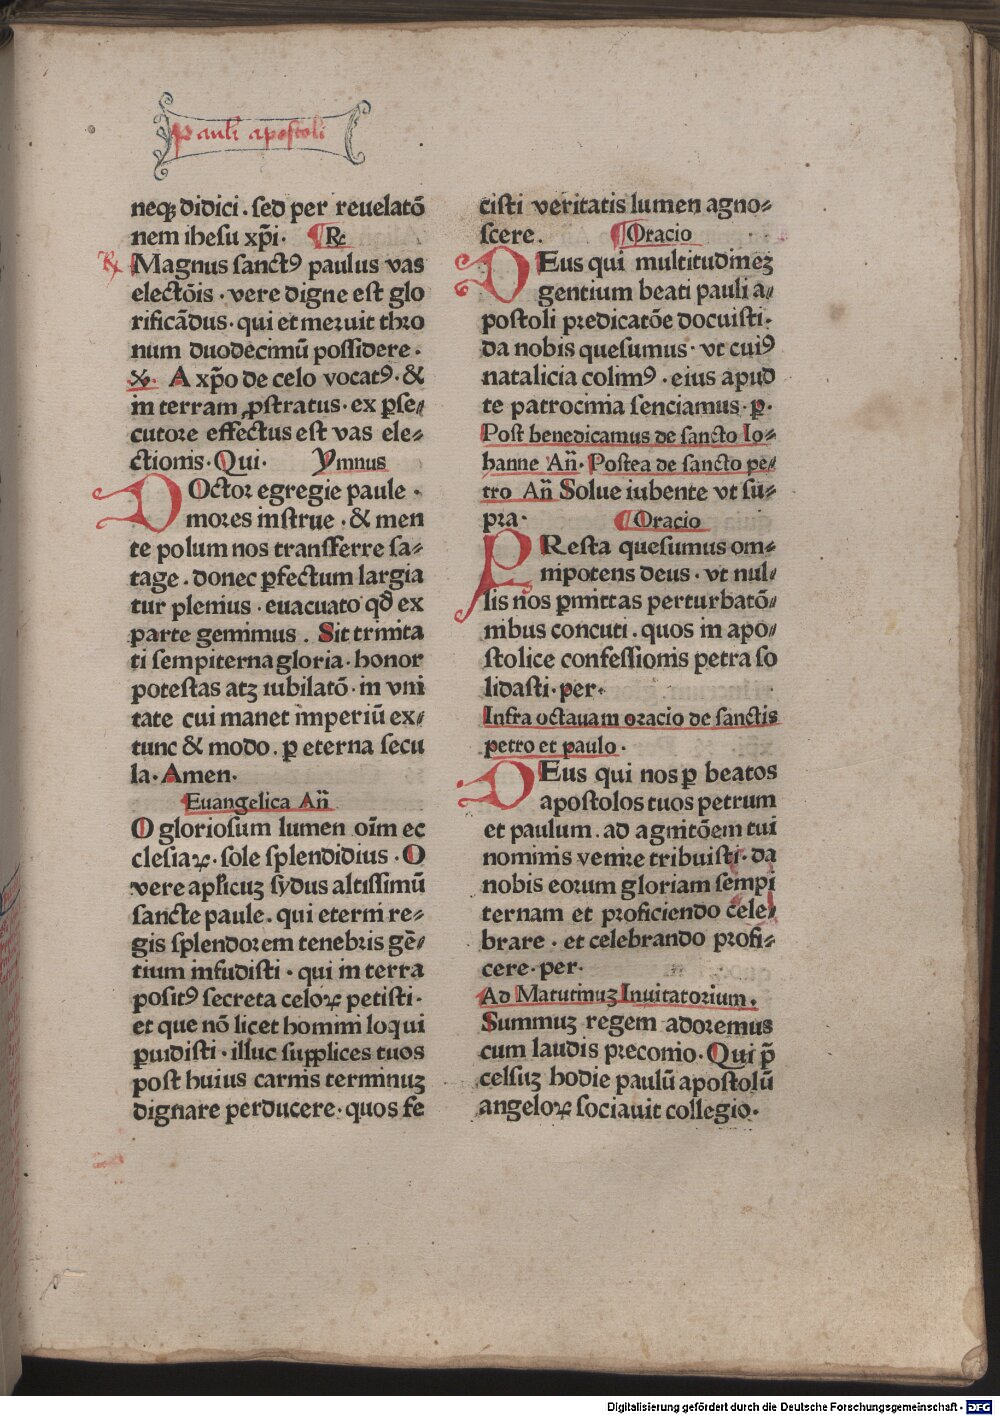 Pauli apostoli
neqꝫ didici . sed per reuelatō
nem ihesu xp̄i · ¶ R̄c
R̄ Magnus sanctꝰ paulus vas
electōis · vere digne est glo
rificādus · qui et meruit thro
num duodecimū possidere ·
℣. A xp̄o de celo vocatꝰ · &
in terram ꝓstratus · ex ꝑse⸗
cutore effectus est vas ele⸗
ctionis · Qui · Ymnus
DOctor egregie paule ·
mores instrue · & men
te polum nos transferre sa⸗
tage . donec ꝑfectum largia
tur plenius · euacuato qđ ex
parte gemimus . Sit trinita
ti sempiterna gloria · honor
potestas atꝫ iubilatō · in vni
tate cui manet imperiū ex⸗
tunc & modo . ꝑ eterna secu
la · Amen ·
Euangelica An̄
O gloriosum lumen oīm ec
clesiaꝝ · sole splendidius · O
vere apl'icuꝫ sydus altissimū
sancte paule . qui eterni re⸗
gis splendorem tenebris gē⸗
tium infudisti · qui in terra
positꝰ secreta celoꝝ petisti ·
et que nō licet homini loqui
ꝑuidisti · illuc supplices tuos
post huius carnis terminuꝫ
dignare perducere · quos fe
cisti veritatis lumen agno⸗
scere . ¶ Oracio
DEus qui multitudineꝫ
gentium beati pauli a⸗
postoli predicatōe docuisti ·
da nobis quesumus · vt cuiꝰ
natalicia colimꝰ · eius apud
te patrocinia senciamus · ꝑ ·
Post benedicamus de sancto Io⸗
hanne An̄ · Postea de sancto pe⸗
tro An̄ Solue iubente vt su⸗
pra · ¶ Oracio
PResta quesumus om⸗
nipotens deus · vt nul⸗
lis nos ꝑmittas perturbatō⸗
nibus concuti . quos in apo⸗
stolice confessionis petra so
lidasti · per ·
Infra octauam oracio de sanctis
petro et paulo ·
DEus qui nos ꝑ beatos
apostolos tuos petrum
et paulum . ad agnitōem tui
nominis venire tribuisti · da
nobis eorum gloriam sempi
ternam et proficiendo cele⸗
brare · et celebrando profi⸗
cere · per ·
Ad Matutinuꝫ Inuitatorium .
Summuꝫ regem adoremus
cum laudis preconio · Qui p̄
celsuꝫ hodie paulū apostolū
angeloꝝ sociauit collegio ·
Digitalisierung gefördert durch die Deutsche Forschungsgemeinschaft - DFG